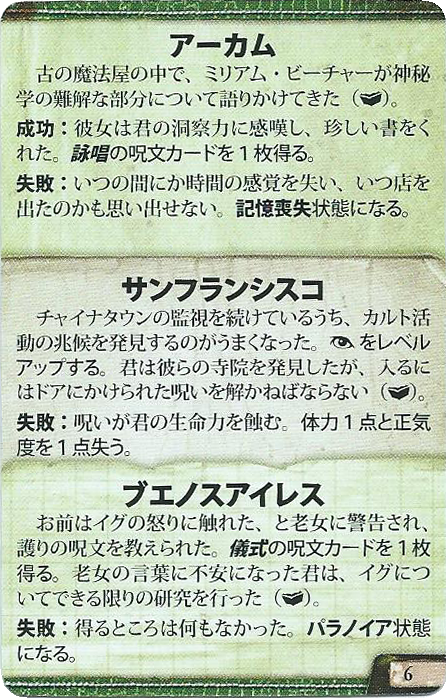 アーカム
古の魔法屋の中で、ミリアム・ビーチャーが神秘
学の難解な部分について語りかけてきた（）。
成功：彼女は君の洞察力に感嘆し、珍しい書をく
れた。詠唱の呪文カードを１枚得る。
失敗：いつの間にか時間の感覚を失い、いつ店を
出たのかも思い出せない。記憶喪失状態になる。
サンフランシスコ
チャイナタウンの監視を続けているうち、カルト活
動の兆候を発見するのがうまくなった。をレベル
アップする。君は彼らの寺院を発見したが、入るに
はドアにかけられた呪いを解かねばならない（）。
失敗：呪いが君の生命力を蝕む。体力１点と正気
度を１点失う。
ブエノスアイレス
お前はイグの怒りに触れた、と老女に警告され、
護りの呪文を教えられた。儀式の呪文カードを１枚
得る。老女の言葉に不安になった君は、イグにつ
いてできる限りの研究を行った（）。
失敗：得るところは何もなかった。パラノイア状態
になる。
6